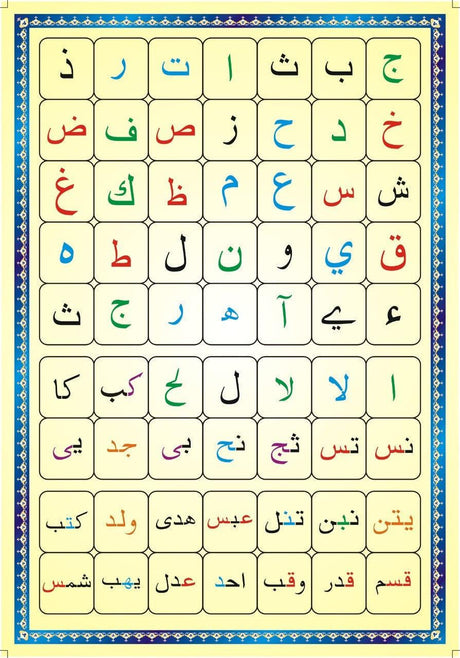 ج ب ث ا ت ر ذ
خ د ح ز ص ف ض
ش س ع م ظ ك غ
ق ي و ن ل ط ه
ء ے آ ھ ر ج ث
ا لا لا ل لح كب كا
نس تس ثج نح بى جد يى
يتن نبن تنل عبس هدى ولد كتب
قسم قدر وقب احد عدل يهب شمس